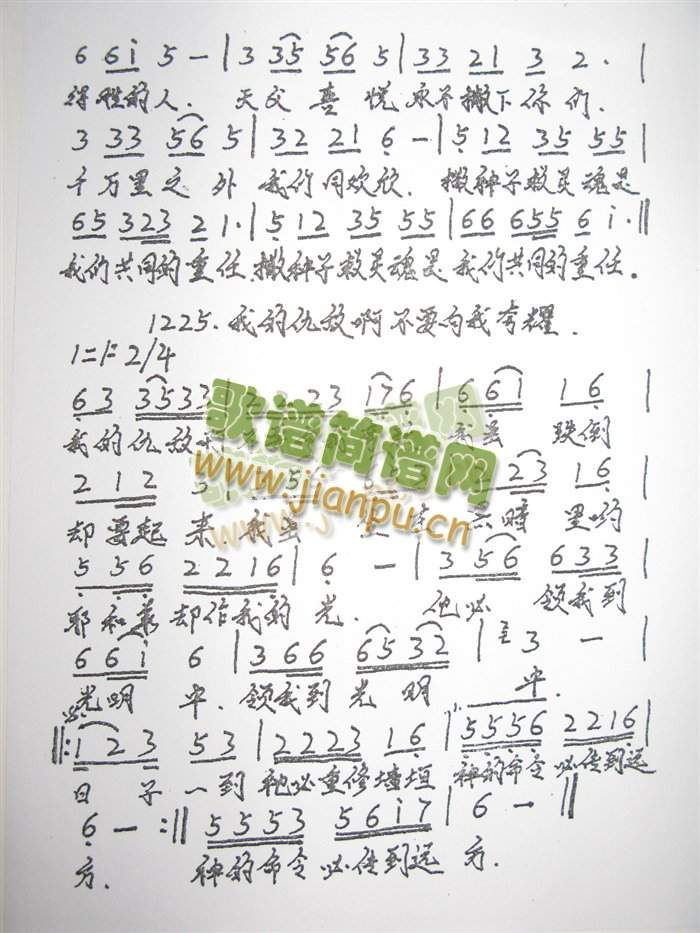 6 6i 5 — | 3 35 56 5 | 33 21 3 2 · |
得胜的人. 天父喜悦永不撇下你们.
3 33 56 5 | 32 21 6 — | 5 12 35 55 |
千万里之外 我们同欢欣. 撒种子救灵魂是
65 323 2 1· | 5 12 35 55 | 66 655 6 i · ||
我们共同的重任. 撒种子救灵魂是 我们共同的重任。
1225. 我的仇敌啊不要向我夸耀.
1=F 2/4
63 3533 23 176 | 6 61 16 |
我的仇敌 我虽 跌倒
2 12 3 5 23 16 |
却要起来. 我虽 时里哟
5 56 2216 | 6 — | 3 56 633 |
耶和华却作我的光. 他必 领我到
6 6i 6 | 3 66 6532 | 3 — |
光明 中. 领我到光明 中.
||: 123 53 | 2223 16 | 5556 2216 |
日子一到 祂必重修墙垣 神的命令必传到远
6 — :|| 5553 56i7 | 6 — ||
方. 神的命令必传到远 方.
歌谱简谱网
www.jianpu.cn